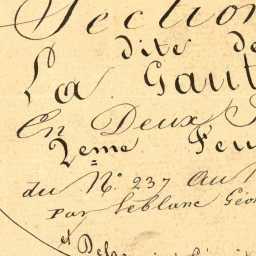 Section
dite de
La Gaut
En Deux F
2eme Feu
du N° 237 au N
Par Leblanc Géo
et Del